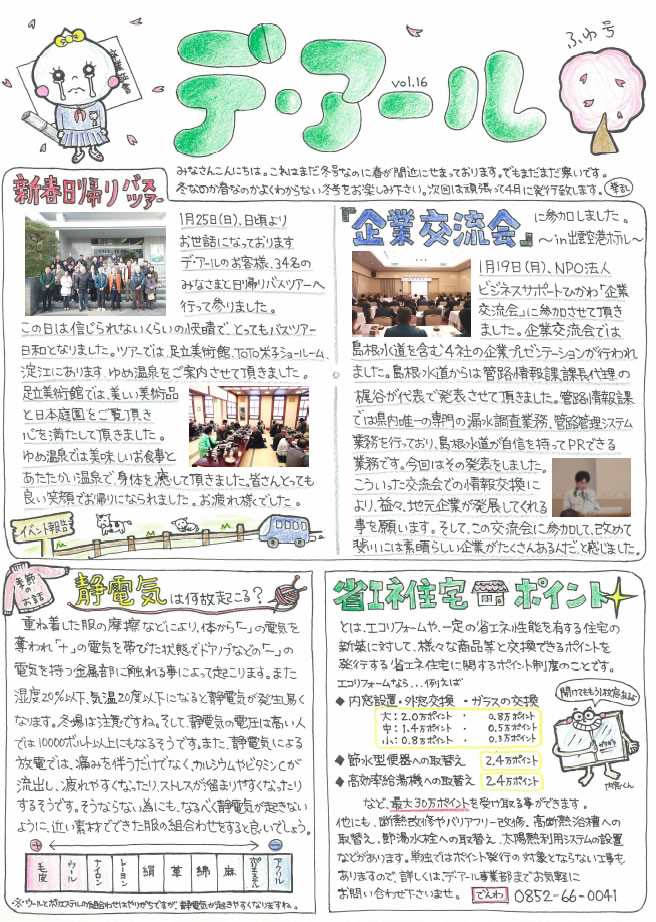 デ・アール
vol.16
ふゆ号
卒業証書
みなさんこんにちは。これはまだ冬号なのに春が間近にせまっております。でもまだまだ寒いです。
冬なのか春なのかよくわからない冬号をお楽しみ下さい。次回は頑張って4月に発行致します。
新春日帰りバスツアー
1月25日(日)、日頃より
お世話になっております
デ・アールのお客様、34名の
みなさまと日帰りバスツアーへ
行って参りました。
この日は信じられないくらいの快晴で、とってもバスツアー
日和となりました。ツアーでは、足立美術館、TOTO米子ショールーム、
淀江にあります、ゆめ温泉をご案内させて頂きました。
足立美術館では、美しい美術品
と日本庭園をご覧頂き
心を満たして頂きました。
ゆめ温泉では美味しいお食事と
あたたかい温泉で、身体を癒して頂きました。皆さんとっても
良い笑顔でお帰りになられました。お疲れ様でした。
イベント報告
『企業交流会』に参加しました。
〜in出雲空港ホテル〜
1月19日(月)、NPO法人
ビジネスサポートひかわ「企業
交流会」に参加させて頂き
ました。企業交流会では
島根水道を含む4社の企業プレゼンテーションが行われ
ました。島根水道からは管路情報課課長代理の
梶谷が代表で発表させて頂きました。管路情報課
では県内唯一の専門の漏水調査業務、管路管理システム
業務を行っており、島根水道が自信を持ってPRできる
業務です。今回はその発表をしました。
こういった交流会での情報交換に
より、益々、地元企業が発展してくれる
事を願います。そして、この交流会に参加して、改めて
斐川には素晴らしい企業がたくさんあるんだと感じました。
季節のお話
静電気は何故起こる?
重ね着した服の摩擦などにより、体から「−」の電気を
奪われ「+」の電気を帯びた状態でドアノブなどの「−」の
電気を持つ金属部に触れる事によって起こります。また
湿度20%以下、気温20度以下になると静電気が発生し易く
なります。冬場は注意ですね。そして、静電気の電圧は高い人
では10000ボルト以上にもなるそうです。また、静電気による
放電では、痛みを伴うだけでなく、カルシウムやビタミンCが
流出し、疲れやすくなったり、ストレスが溜まりやすくなったり
するそうです。そうならない為にも、なるべく静電気が起きない
ように、近い素材でできた服の組合わせをすると良いでしょう。
+ −
毛皮 ウール ナイロン レーヨン 絹 革 綿 麻 ポリエステル アクリル
※ウールとポリエステルの組合わせはやりがちですが、静電気が起きやすくなりますね。
省エネ住宅ポイント
とは、エコリフォームや、一定の省エネ性能を有する住宅の
新築に対して、様々な商品等と交換できるポイントを
発行する省エネ住宅に関するポイント制度のことです。
エコリフォームなら…例えば
◆内窓設置・外窓交換・ガラスの交換
大:2.0万ポイント・0.8万ポイント
中:1.4万ポイント・0.5万ポイント
小:0.8万ポイント・0.3万ポイント
◆節水型便器への取替え 2.4万ポイント
◆高効率給湯機への取替え 2.4万ポイント
内窓くん
など、最大30万ポイントを受け取る事ができます。
他にも、断熱改修やバリアフリー改修、高断熱浴槽への
取替え、節湯水栓への取替え、太陽熱利用システムの設置
などがあります。単独ではポイント発行の対象とならない工事も
ありますので、詳しくは、デ・アール事業部までお気軽に
お問い合わせ下さいませ。 でんわ 0852-66-0041